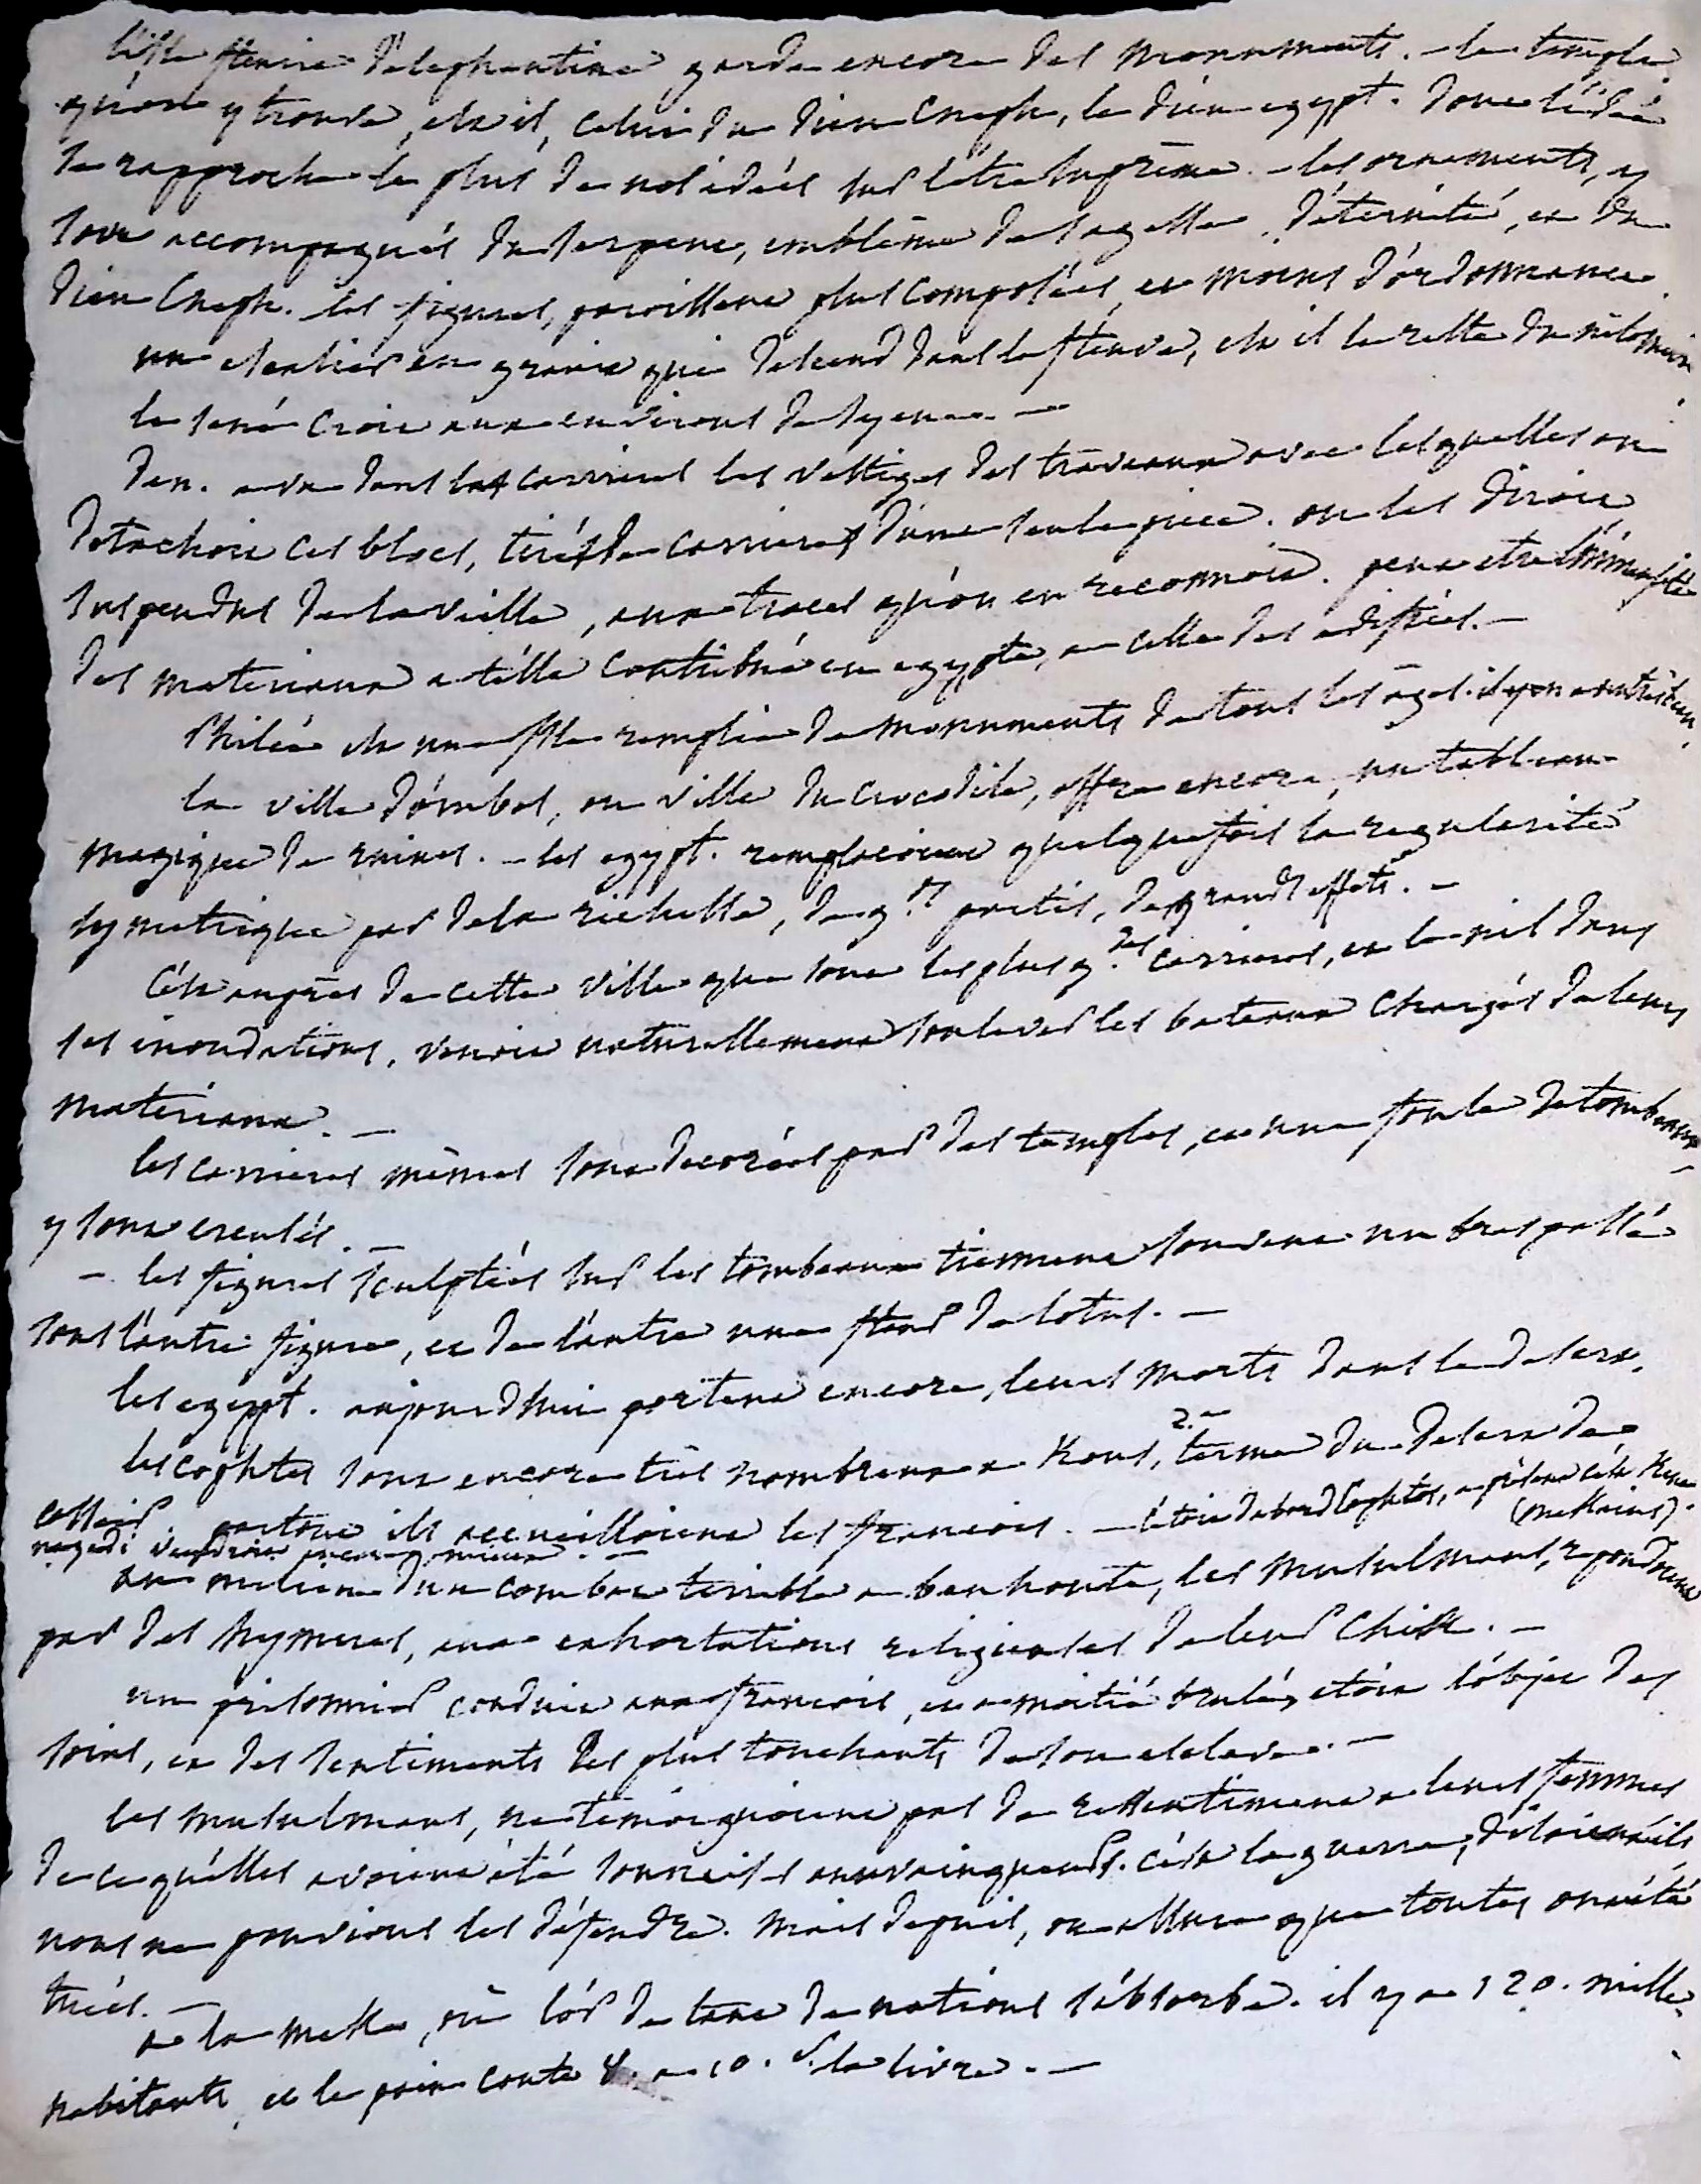 l'isle fleurie d'elephantine garde encore des monuments. – le temple
qu'on y trouve, est il, celui du dieu Cneph, le dieu egypt. dont l'idée
se rapproche le plus de nos idées sur l'etre suprême. – les ornements, y
sont accompagnés du serpent, emblême de sagesse, d'éternité, et du
dieu Cneph. les figures, paroissent plus composées, et moins d'ordonnance.
un escalier en granit qui descend dans le fleuve, est il le reste du nilomètre
le sené croit aux environs de syenne. –
Den. a vu dans les carrieres les vestiges des travaux avec lesquelles on
detachoit ces blocs, tirés de carrieres d'une seule piece. on les diroit
suspendus de la veille, aux traces qu'on en reconnoit. peut etre l'immensité
des materiaux a t'elle contribué en egypte, a celle des edifices. –
Philée est une isle remplie de monuments de tous les ages.
la ville d'ombos, ou ville du crocodile, offre encore, un tableau
magique de ruines. – les egypt. remplacoient quelquefois la regularité
symetrique par de la richesse, de gds partis, de grands effets. –
C'est auprès de cette ville que sont les plus gdes carrieres, et le nil dans
ses inondations, venoit naturellement soulever les bateaux chargés de leurs
materiaux. –
les carrieres mêmes sont decorées par des temples, et une foule de tombeaux
y sont creusés. –
– les figures sculptées sur les tombeaux tiennent souvent un bras passé
sous l'autre figure, et de l'autre une fleur de lotus. –
les egypt. aujourdhui portent encore, leurs morts dans le desert.
les cophtes sont encore très nombreux a Kous, terme du desert de
cosseir. partout ils accueilloient les francois. – c'etoit dabord Cophtos, a present c'est Kene
nagadi vaudroit encore mieux. – (mekains).
au milieu d'un combat terrible a benhoute, les musulmans, repondirent
par des hymnes, aux exhortations religieuses de leur Chikh. –
un prisonnier conduit aux francois, et a moitié brulé, etoit l'objet des
soins, et des sentiments les plus touchants de son esclave. –
les musulmans, ne temoignoient pas de ressentiment a leurs femmes
de ce qu'elles avoient été soumises aux vainqueurs. c'est la guerre, disoient ils
nous ne pouvions les défendre. mais depuis, on assure que toutes ont été
tuées. –
a la mekke, où l'or de tant de nations s'absorbe. il y a 120. mille
habitants, et le pain coute 8. a 10. s. la livre. –